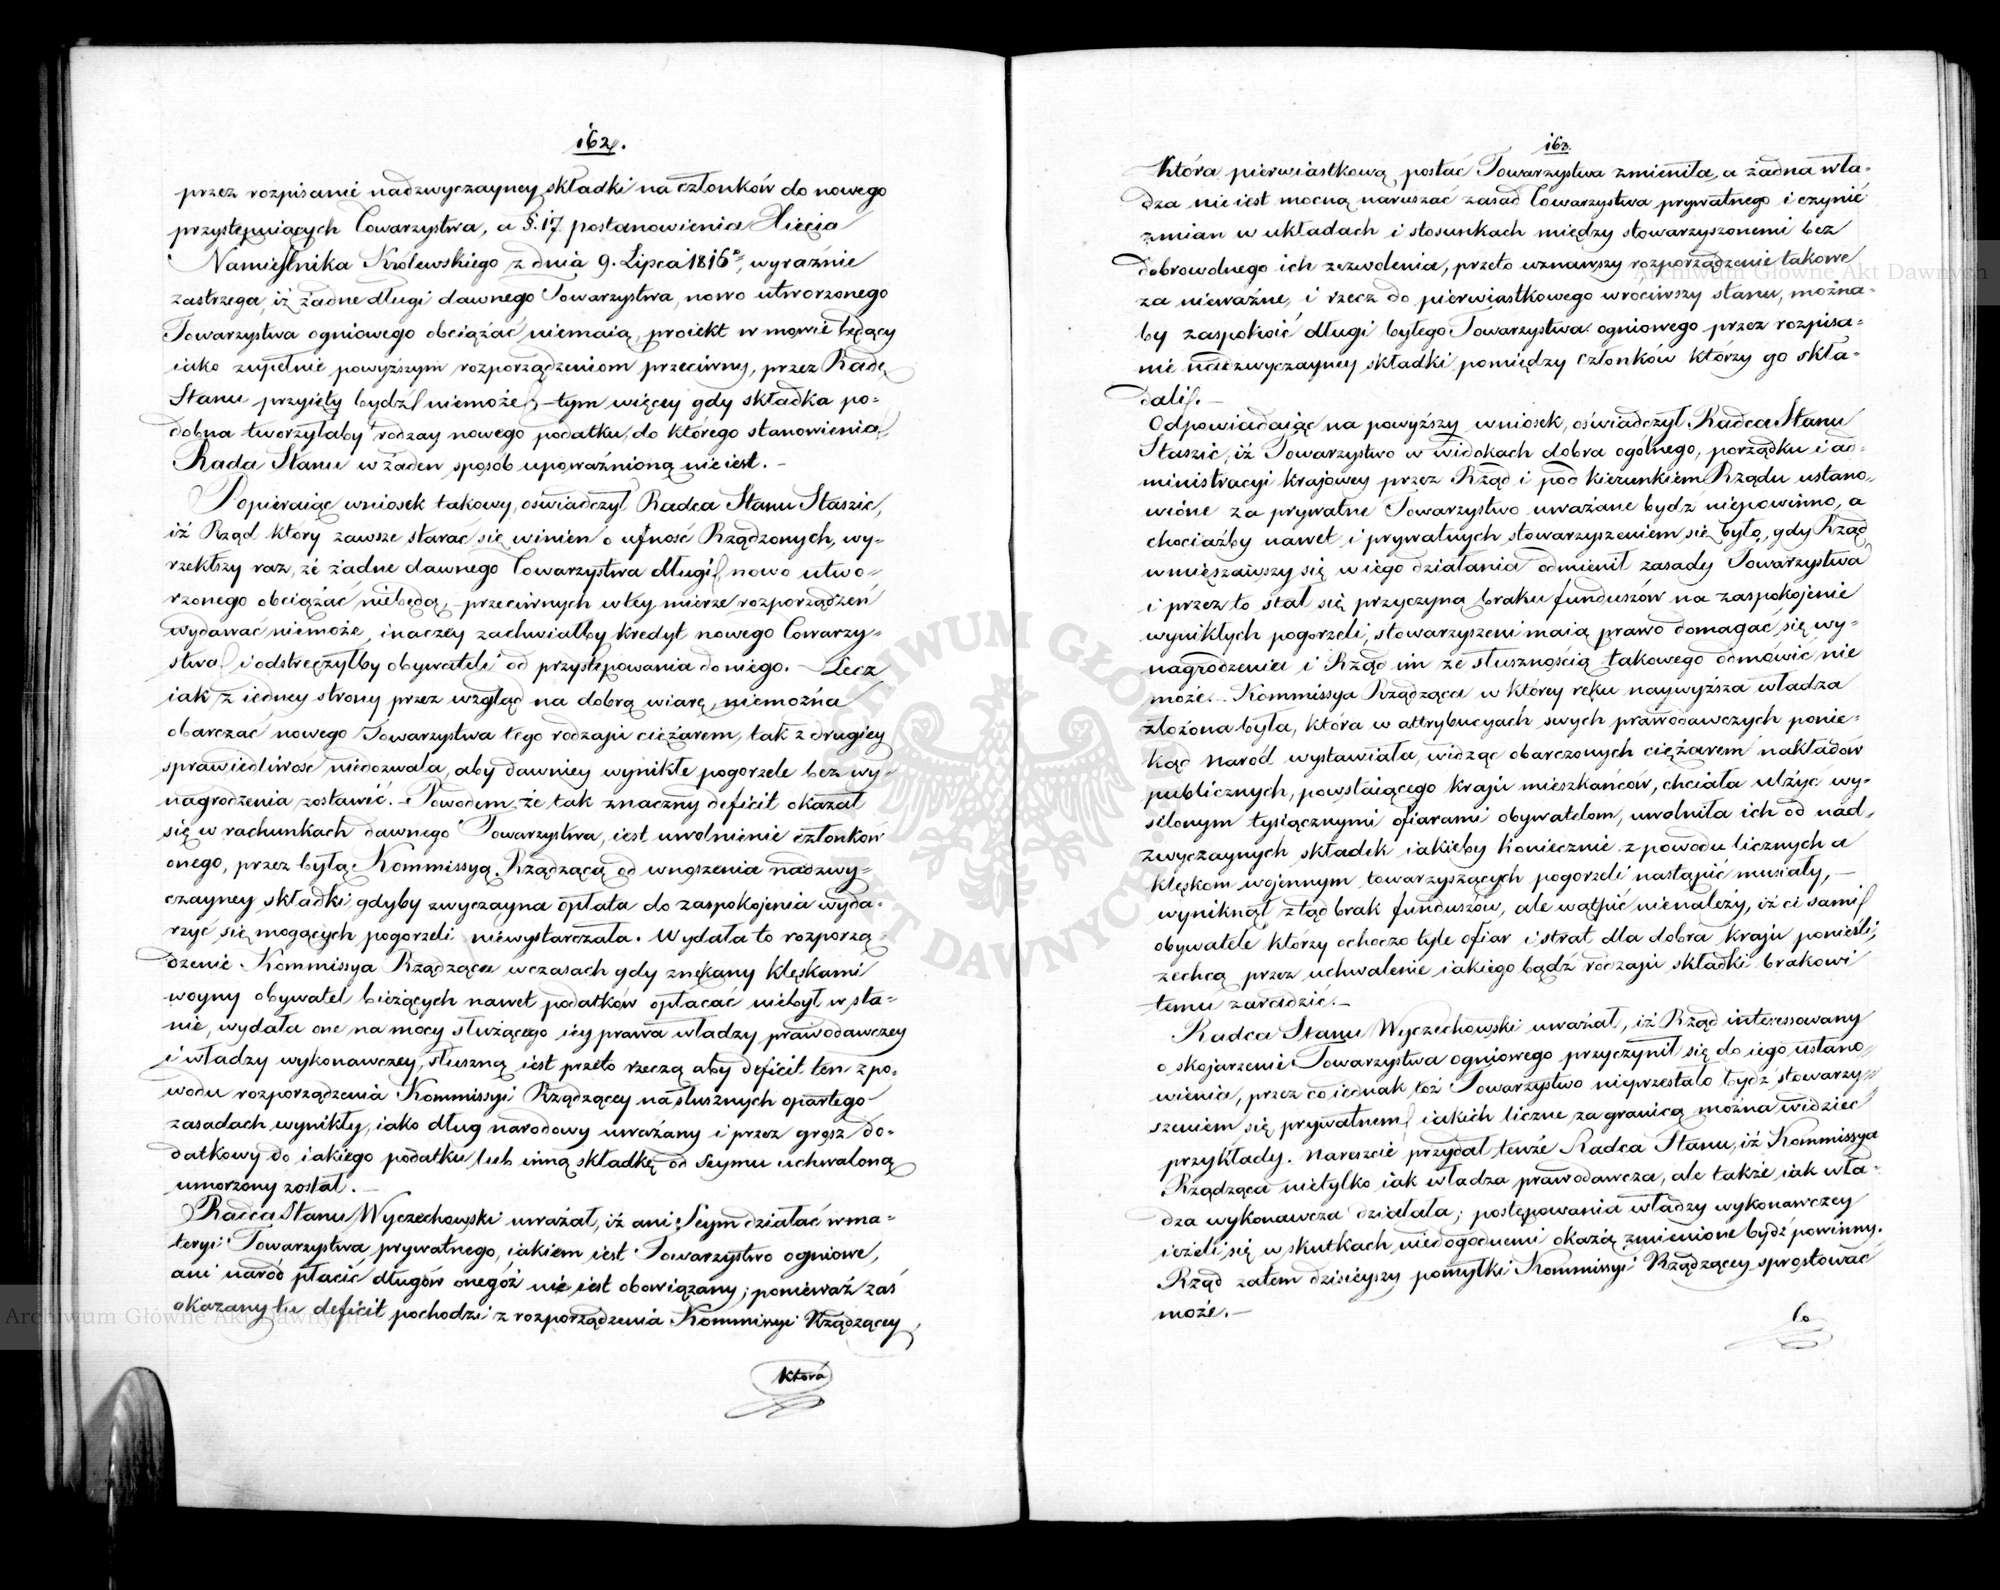 162.
przez rozpisanie nadzwyczayney składki na członków do nowego
przystępuiących Towarzystwa, a §. 17 postanowienia Xięcia
Namiestnika Królewskiego z dnia 9. Lipca 1816º, wyraźnie
zastrzega, iż żadne długi dawnego Towarzystwa, nowo utworzonego
Towarzystwa ogniowego obciążać niemaią, proiekt w mowie będący
iako zupełnie powyższym rozporządzeniom przeciwny, przez Radę
Stanu przyięty bydź niemoże, – tym więcey gdy składka po-
dobna tworzyłaby rodzay nowego podatku, do którego stanowienia
Rada Stanu w żaden sposób upoważnioną nie iest. –
Popieraiąc wniosek takowy, oświadczył Radca Stanu Staszic,
iż Rząd który zawsze starać się winien o ufność Rządzonych, wy-
rzekłszy raz, że żadne dawnego Towarzystwa długi nowo utwo-
rzonego obciążać niebędą, – przeciwnych w tey mierze rozporządzeń
wydawać niemoże, inaczey zachwiałby kredyt nowego Towarzy-
stwa i odstręczyłby obywateli od przystępowania do niego. – Lecz
iak z iedney strony przez wzgląd na dobrą wiarę, niemożna
obarczać nowego Towarzystwa tego rodzaju ciężarem, tak z drugiey
sprawiedliwość niedozwala, aby dawniey wynikłe pogorzele bez wy-
nagrodzenia zostawić. – Powodem, że tak znaczny deficit okazał
się w rachunkach dawnego Towarzystwa, iest uwolnienie członków
onego, przez byłą Kommissyą Rządzącą od wnoszenia nadzwy-
czayney składki, gdyby zwyczayna opłata do zaspokojenia wyda-
rzyć się mogących pogorzeli niewystarczała. Wydała to rozporzą-
dzenie Kommissya Rządząca w czasach gdy znękany klęskami
woyny obywatel bieżących nawet podatków opłacać niebył w sta-
nie, wydała one na mocy służącego iey prawa władzy prawodawczey
i władzy wykonawczey, słuszną iest przeto rzeczą aby deficit ten z po-
wodu rozporządzenia Kommissyi Rządzącey na słusznych opartego
zasadach wynikły, iako dług narodowy uważany i przez grosz do-
datkowy do iakiego podatku lub inną składkę od Seymu uchwaloną
umorzony został. –
Radca Stanu Wyczechowski uważał, iż ani Seym działać w ma-
teryi Towarzystwa prywatnego, iakiem iest Towarzystwo ogniowe,
ani naród płacić długów onegóż nie iest obowiązany; ponieważ zaś
okazany tu deficit pochodzi z rozporządzenia Kommissyi Rządzącey
która
163.
Która pierwiastkową postać Towarzystwa zmieniła, a żadna wła-
dza nie iest mocną naruszać zasad Towarzystwa prywatnego i czynić
zmian w układach i stosunkach między stowarzyszonemi bez
dobrowolnego ich zezwolenia, przeto uznawszy rozporządzenie takowe
za nieważne, i rzecz do pierwiastkowego wróciwszy stanu, można-
by zaspokoić długi byłego Towarzystwa ogniowego przez rozpisa-
nie nadzwyczayney składki pomiędzy członków którzy go skła-
dali. –
Odpowiadaiąc na powyższy wniosek, oświadczył Radca Stanu
Staszic, iż Towarzystwo w widokach dobra ogólnego, porządku i ad-
ministracyi krajowey przez Rząd i pod kierunkiem Rządu ustano-
wione za prywatne Towarzystwo uważane bydź niepowinno, a
chociażby nawet i prywatnych stowarzyszeniem się było, gdy Rząd
wmięszawszy się w iego działania odmienił zasady Towarzystwa
i przez to stał się przyczyną braku funduszów na zaspokojenie
wynikłych pogorzeli, stowarzyszeni maią prawo domagać się wy-
nagrodzenia i Rząd im ze słusznością takowego odmówić nie
może. – Kommissya Rządząca w którey ręku naywyższa władza
złożona była, która w attrybucyach swych prawodawczych ponie-
kąd naród wystawiała, widząc obarczonych ciężarem nakładów
publicznych, powstaiącego kraju mieszkańców, chciała ulżyć wy-
silonym tysiącznymi ofiarami obywatelom, uwolniła ich od nad-
zwyczaynych składek iakieby koniecznie z powodu licznych a
klęskom wojennym towarzyszących pogorzeli nastąpić musiały, –
wyniknął ztąd brak funduszów, ale wątpić nienależy, iż ci sami
obywatele którzy ochoczo tyle ofiar i strat dla dobra kraju ponieśli,
zechcą przez uchwalenie iakiego bądź rodzaju składki brakowi
temu zaradzić. –
Radca Stanu Wyczechowski uważał, iż Rząd interessowany
o skojarzenie Towarzystwa ogniowego przyczynił się do iego ustano-
wienia, przez co iednak toż Towarzystwo nieprzestało bydź stowarzy-
szeniem się prywatnem iakich liczne zagranicą można widzieć
przykłady. Nareszcie przydał tenże Radca Stanu, iż Kommissya
Rządząca nietylko iak władza prawodawcza, ale także iak wła-
dza wykonawcza działała; postępowania władzy wykonawczey
ieżeli się w skutkach niedogodnemi okażą zmienione bydź powinny.
Rząd zatem dzisieyszy pomyłki Kommissyi Rządzącey sprostować
może. –
Archiwum Główne Akt Dawnych
Archiwum Główne Akt Dawnych
ARCHIWUM GŁÓWNE AKT DAWNYCH